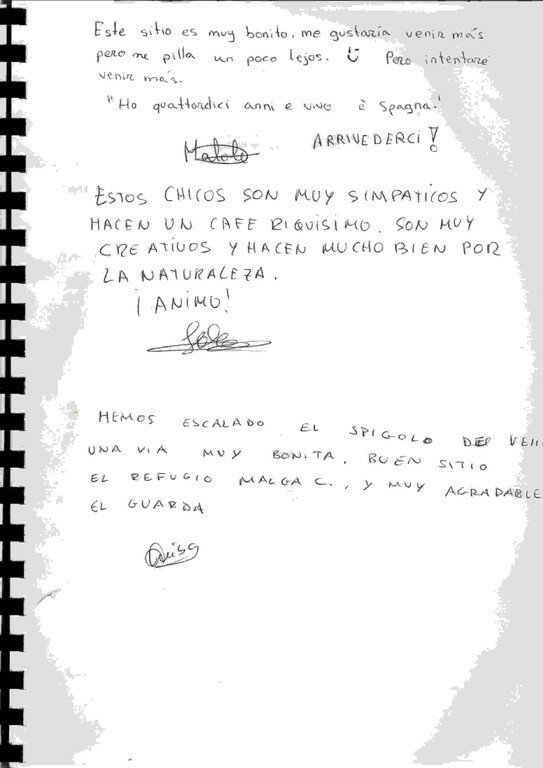 Este sitio es muy bonito, me gustaría venir más
pero me pilla un poco lejos. Pero intentaré
venir más.
"Ho quattordici anni e vivo è Spagna."
ARRIVEDERCI!
Matolo
ESTOS CHICOS SON MUY SIMPATICOS Y
HACEN UN CAFE RIQUISIMO. SON MUY
CREATIVOS Y HACEN MUCHO BIEN POR
LA NATURALEZA.
¡ANIMO!
HEMOS ESCALADO EL SPIGOLO DEL
UNA VIA MUY BONITA, BUEN SITIO
EL REFUGIO MALGA C., Y MUY AGRADABLE
EL GUARDA